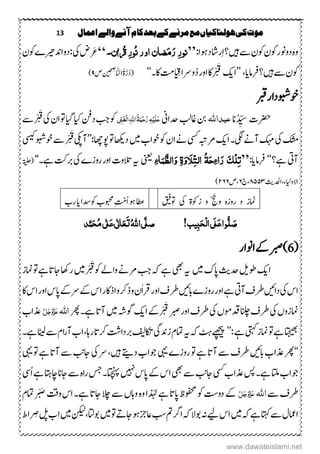 موت کی ہولناکیاں مع مرنے کے بعد کام آنے والے اعمال 13
وہ دو نور کون کون سے ہیں؟ اِرشاد ہوا: ’’نورِ رَمَضان اور نُورِ قرآن۔‘‘ عَرض کی: دو اندھیرے کون
کون سے ہیں؟ فرمایا، ’’ایک قَبْر کا اور دوسرا قِیامت کا۔‘‘ (دُرَّۃُ النّاصحین ص۹)
خوشبودار قبر
حضرت سیّدنا عبداللہ بن غالب حدانی عَلَیْہِ رَحْمَۃُ اللہ کو جب دفن کیا گیا تو ان کی قَبْر سے
مشک کی مہک آنے لگی۔ ایک مرتبہ کسی نے ان کو خواب میں دیکھا تو پوچھا: ’’آپ کی قَبْر سے کیسی خوشبو
آتی ہے؟‘‘ فرمایا: ’’تِلْکَ رَائِحَۃُ التِّلَاوَۃِ وَالظَّمَاِ یعنی یہ تلاوت اور روزے کی برکت ہے۔‘‘ (حلیۃ
الاولیاء، الحدیث ۸۵۵۳، ج۶، ص۲۶۶)
نماز و روزہ و حج و زکوٰۃ کی توفیق عطا ہو اُمّتِ محبوب کو سدا یا رب
صَلُّوا عَلَی الْحَبِیْب! صلَّی اللہُ تَعَالٰی عَلٰی مُحَمَّد
(6) صبر کے انوار
ایک طویل حدیث پاک میں یہ بھی ہے کہ جب مرنے والے کو قَبْر میں رکھا جاتا ہے تو نماز
اس کی دائیں طرف آتی ہے اور روزے بائیں طرف اور قرآن اور ذکر و اذکار اس کے سر کے پاس اور اس کا
نمازوں کی طرف چلنا قدموں کی طرف اور صبر قَبْر کے ایک گوشہ میں آتا ہے۔ پھر اللہ عَزَّوَجَلَّ عذاب
بھیجتا ہے تو نماز کہتی ہے: ’’پیچھے ہٹ کہ یہ تمام زندگی تکالیف برداشت کرتا رہا، اب آرام سے لیٹا ہے۔
‘‘ پھر عذاب بائیں طرف سے آتا ہے تو روزے یہی جواب دیتے ہیں، سر کی جانب سے آتا ہے تو یہی
جواب ملتا ہے۔ پس عذاب کسی جانب سے بھی اس کے پاس نہیں پہنچتا۔ جس راہ سے جانا چاہتا ہے اُسی
طرف سے اللہ عَزَّوَجَلَّ کے دوست کو محفوظ پاتا ہے لہٰذا وہ وہاں سے چلا جاتا ہے۔ اس وقت صَبْر تمام
اعمال سے کہتا ہے کہ میں اس لیے نہ بولا کہ اگر تم سب عاجز ہو جاتے تو میں بولتا، لیکن میں اب پل صراط
www.dawateislami.net